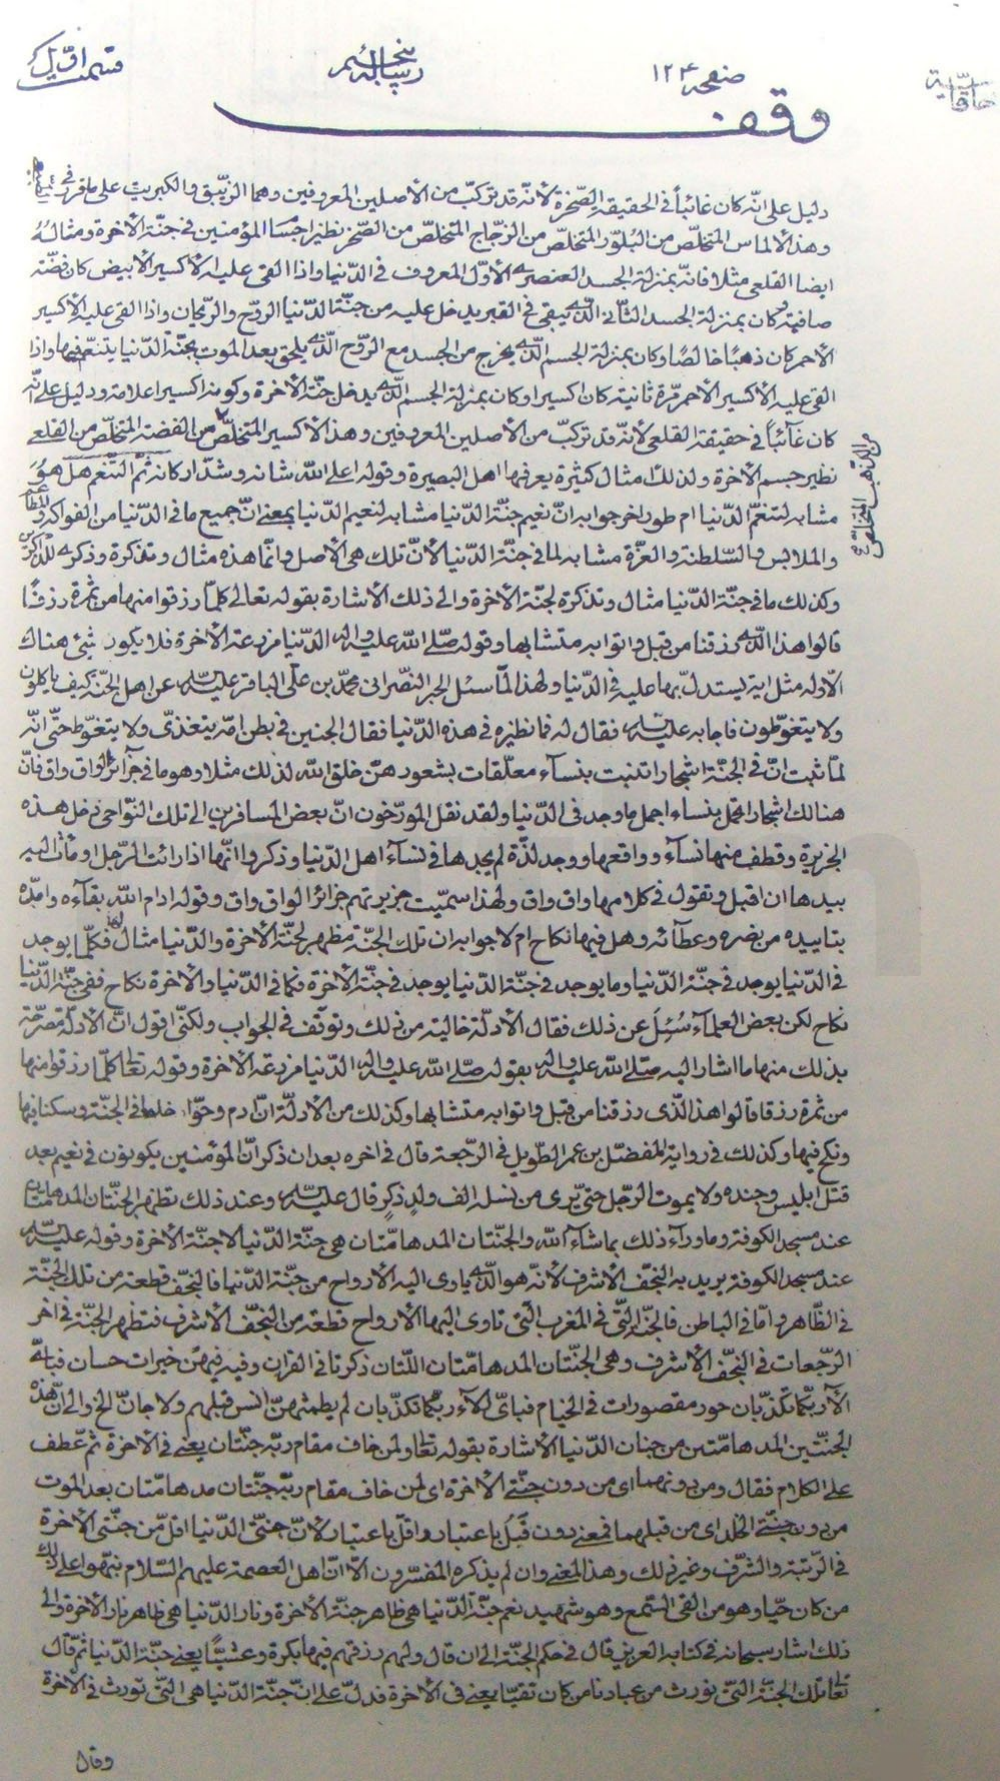 قسمت اوّل
رسالة
صفحه ١٢٤
خاقانية
وقف
دليل على انّه كان غائباً في الحقيقة الصّخرة لأنّه قد تركّب من الأصلين المعروفين وهما الزيبق والكبريت على ما قرّر في
وهذا الالماس المتخلّص من البُلوّر المتخلّص من الزجاج المتخلّص من الصّخر نظير اجسا المؤمنين في جنّة الأخرة ومثاله
ايضا القلعي مثلا فانّه بمنزلة الجسد العنصري الأوّل المعروف في الدّنيا واذا القي عليه الأكسير الأبيض كان فضّة
صافية وكان بمنزلة الجسد الثّاني الّذي يبقى في القبر يدخل عليه من جنّة الدّنيا الروح والرّيحان واذا القي عليه الأكسير
الأحمر كان ذهبًا خالصًا وكان بمنزلة الجسم الّذي يخرج من الجسد مع الروّح الّذي يلحق بعد الموت بجنّة الدّنيا يتنعّم فيها واذا
القي عليه الأكسير الأحمر مرّة ثانية كان اكسيرا وكان بمنزلة الجسم الّذي يدخل جنّة الأخرة وكونه اكسيرا علامة ودليل على انّه
كان غائباً في حقيقة القلعي لأنّه قد تركّب من الأصلين المعروفين وهذا الأكسير المتخلّص من الفضة المتخلّص من القلعي
من الذهب المتخلّص
نظير جسم الأخرة ولذلك امثال كثيرة يعرفها اهل البصيرة وقوله اعلى الله شانه وشدّ اركانه ثم التنعم هل هوَ
مشابه لتنعّم الدّنيا ام طور اخر جوابه انّ نعيم جنّة الدّنيا مشابه لنعيم الدّنيا بمعنى انّ جميع ما في الدّنيا من الفواكه والمطاعم
والملابس والسّلطنة والعزّة مشابه لما في جنّة الدّنيا لأنّ تلك هي الأصل وانّما هذه مثال وتذكرة وذكرى للذّاكرين
وكذلك ما في جنّة الدّنيا مثال وتذكرة لجنّة الأخرة والى ذلك الأشارة بقوله تعالى كلّما رزقوا منها من ثمرة رزقًا
قالوا هذا الّذي رزقنا من قبل واتوا به متشابها وقوله صلى الله عليه واله الدّنيا مزرعة الأخرة فلا يكون شئ هناك
الّا وله مثل اية يستدلّ بها عليه في الدّنيا ولهذا لمّا سئل الحبر النّصراني محمّد بن علي الباقر عليه السّلم عن اهل الجنّة كيف ياكلون
ولا يتغوّطون فاجابه عليه السّلم فقال له فما نظيره في هذه الدّنيا فقال الجنين في بطن امّه يتغذّى ولا يتغوّط حتّى انّه
لمّا ثبت انّ في الجنّة اشجارا تنبت بنساء معلّقات بشعورهنّ خلق الله لذلك مثلا وهو ما في جزائر الواق واق فانّ
هنالك اشجار تحمل بنساء اجمل ما وجد في الدّنيا ولقد نقل المورّخون انّ بعض المسافرين الى تلك النّواحي دخل هذه
الجزيرة وقطف منها نسآء وواقعها ووجد لذّة لم يجدها في نسآء اهل الدّنيا وذكروا انّها اذا رأت الرّجل اومات اليه
بيدها ان اقبل وتقول في كلامها واق واق ولهذا سمّيت جزيرتهم جزائر الواق واق وقوله ادام الله بقآءه وامدّه
بتاييده من نصره وعطآئه وهل فيها نكاح ام لا جوابه ان تلك الجنّة مظهر لجنّة الأخرة والدّنيا مثال لها فكلّما يوجد
في الدّنيا يوجد في جنّة الدّنيا وما يوجد في جنّة الدّنيا يوجد في جنّة الأخرة فما في الدّنيا والاخرة نكاح ففي جنّة الدّنيا
نكاح لكن بعض العلمآء سُئِلَ عن ذلك فقال الأدلّة خالية من ذلك وتوقّف في الجواب ولكنّي اقول انّ الأدلّة مصرّحة
بذلك منها ما اشار اليه صلى الله عليه واله بقوله صلّى الله عليه واله الدّنيا مزرعة الأخرة وقوله تعالى كلّما رزقوا منها
من ثمرة رزقا قالوا هذا الّذي رزقنا من قبل واتوا به متشابها وكذلك من الأدلّة انّ ادم وحوّا خلقا في الجنّة وسكنا فيها
ونكح فيها وكذلك في رواية المفضّل بن عمر الطّويل في الرّجعة قال في اخره بعد ان ذكر انّ المؤمنين يكونون في نعيم بعد
قتل ابليس وجنده ولا يموت الرّجل حتّى يرى من نسله الف ولدٍ ذكرٍ قال عليه السّلم وعند ذلك تظهر الجنّتان المدهامّتان
عند مسجد الكوفة وما ورآء ذلك بما شآء الله والجنّتان المدهامّتان هي جنّة الدّنيا لا جنّة الأخرة وقوله عليه السّلم
عند مسجد الكوفة يريد به النّجف الأشرف لأنّه هو الّذي ياوى اليه الأرواح من جنّة الدّنيا فالنجف قطعة من تلك الجنّة
في الظّاهر وامّا في الباطن فالجنّة الّتي في المغرب الّتي تاوى اليها الأرواح قطعة من النّجف الأشرف فتظهر الجنّة في اخر
الرّجعات في النّجف الأشرف وهي الجنّتان المدهامّتان اللّتان ذكرتا في القران وفيه فيهنّ خيرات حسان فبايّ
الآء ربّكما تكذّبان حور مقصورات في الخيام فبايّ الآء ربّكما تكذّبان لم يطمثهنّ انس قبلهم ولا جانّ الخ والى انّ هذه
الجنّتين المدهامّتين من جنان الدّنيا الأشارة بقوله تعالى ولمن خاف مقام ربّه جنّتان يعني في الأخرة ثم عطف
على الكلام فقال ومن دونهما اي من دون جنّتي الأخرة اي لمن خاف مقام ربّه جنّتان مدهامّتان بعد الموت
من دون جنّتي الخلد اي من قبلهما فمعنى دون قَبلُ باعتبار واقلّ باعتبار لأنّ جنّتي الدّنيا اقلّ من جنّتي الأخرة
في الرّتبة والشّرف وغير ذلك وهذا المعنى وان لم يذكره المفسّرون الّا انّ اهل العصمة عليهم السّلام نبّهوا على ذلك
من كان حيّا وهو من القى السّمع وهو شهيد نعم جنّة الدّنيا هي ظاهر جنّة الأخرة ونار الدّنيا هي ظاهر نار الأخرة والى
ذلك اشار سبحانه في كتابه العزيز قال في حكم الجنّة الى ان قال ولهم رزقهم فيها بكرة وعشيًّا يعني جنّة الدّنيا ثم قال
تعالى تلك الجنّة الّتي نورث من عبادنا من كان تقيّا يعني في الأخرة فدلّ على انّ جنّة الدّنيا هي الّتي تورث في الأخرة
وقال